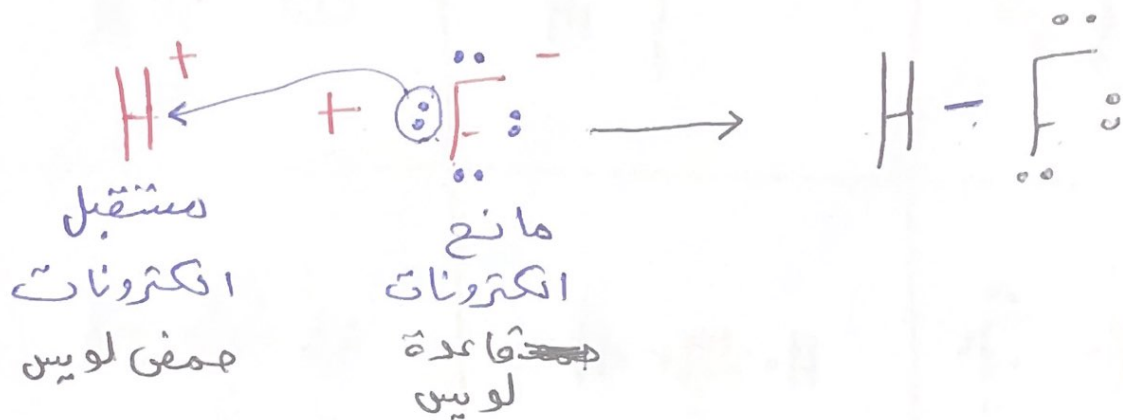 H⁺ + :F:⁻ → H – F:
مستقبل
الكترونات
حمض لويس
مانح
الكترونات
قاعدة
لويس